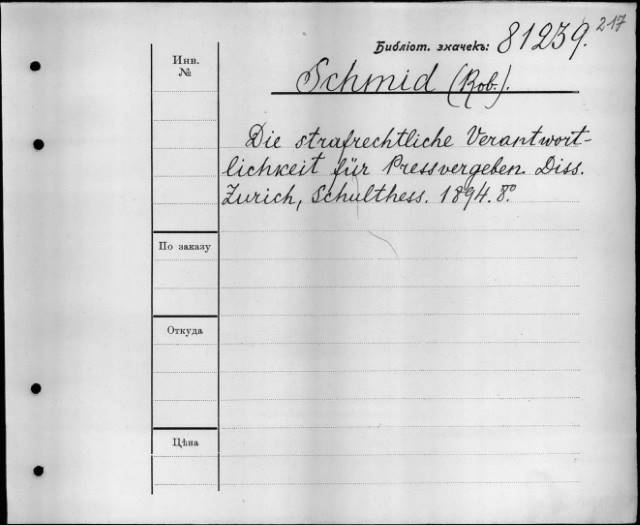 217
Библіот. значекъ: 81239.
Инв.
№
Schmid (Rob.).
Die strafrechtliche Verantwort-
lichkeit für Pressvergehen. Diss.
Zurich, Schulthess. 1894. 8º
По заказу
Откуда
Цѣна